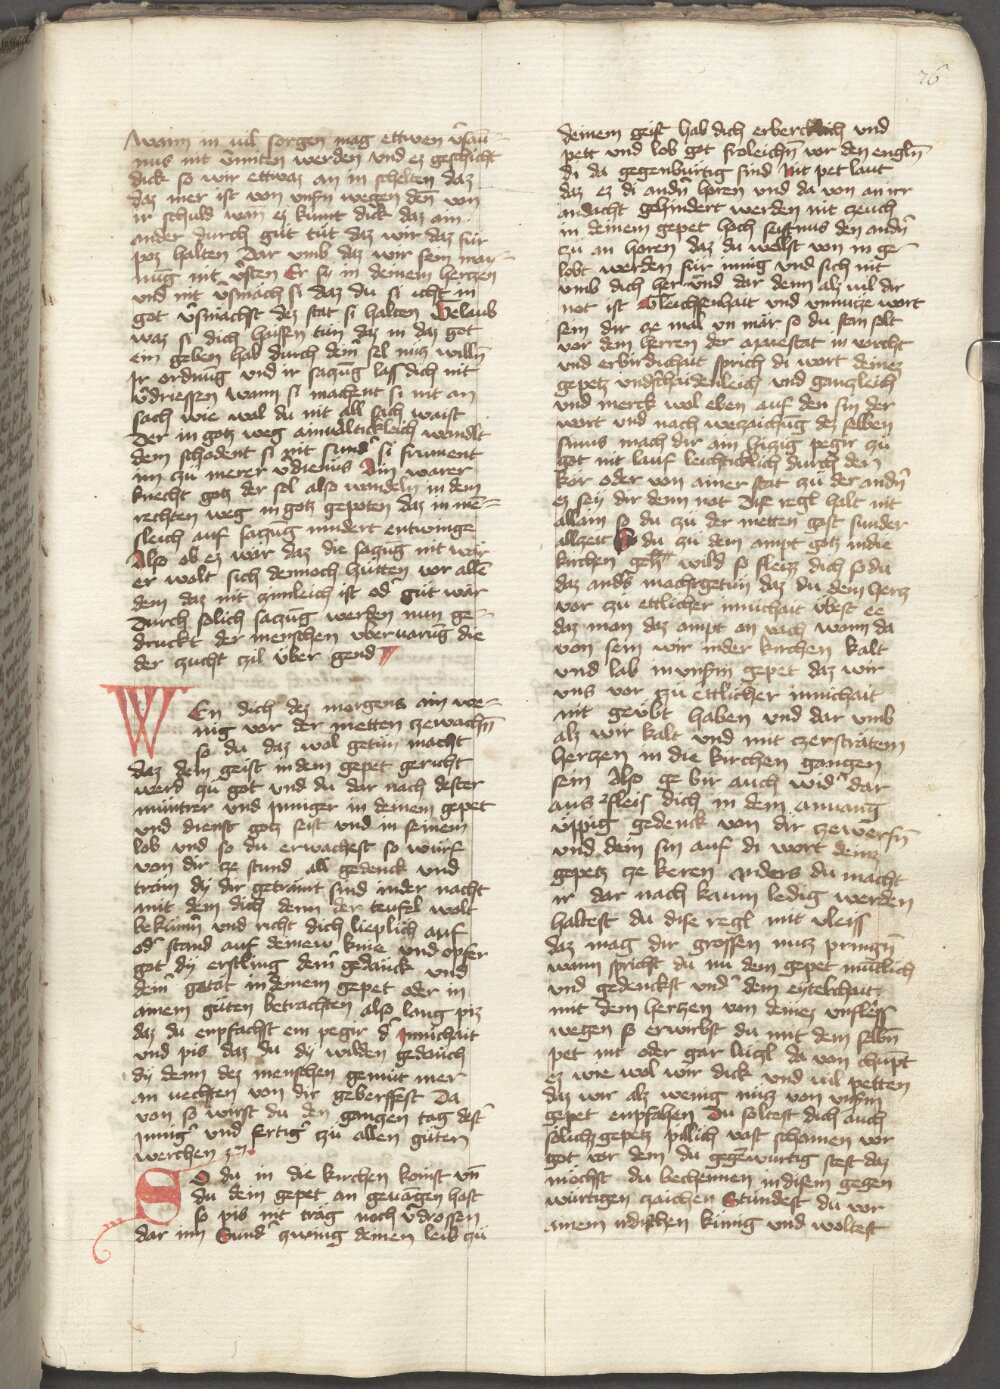 76
wann in uil sorgen mag ettwen v̄sau-
mus nit v̄miten werden vnd ez geschicht
dick so wir ettwaz an in schelten daz
daz mer ist von vnsn̄ wegen den̄ von
ir schuld wan ez kumt dick daz ain
ander durch gůt tůt daz wir daz für
pöz halten Dar vmb daz wir sein may-
nūg nit v̄sten Er sy in deinem herczen
und nit v̄smäch si daz du si icht in
got v̄smächst dez stat si halten Gelaub
waz si dich haissen tůn daz in daz got
ein geben hab durch dein̄ sel nucz willn̄
Ir ordnūg und ir saczūg lass dich nit
v̄driessen wann si machent si nit an
sach wie wol du nit all sach waist
Der in gotz weg ainualtickleich wandlt
dem schadent si nit sund̄ si frument
im zů merer v̄dienüs Ain warer
knecht gotz der sol also wandeln in dem
rechten weg in gotz gepoten daz in me-
sleich auf saczūg nindert entwinge
Also ob ez wär daz die saczūg nit wär
er wolt sich dennoch hütten vor alle
dem daz nit zimleich ist od̄ gůt wär
Durch solich saczūg werden nun ge-
druckt der menschen übervarūg die
der zucht zil über gend
WEn dich dez morgens ain we-
nig vor der metten ze wachn̄
so du daz wol getůn macht
daz dein geist in dem gepet gericht
werd zů got und du dar nach dester
müntrer und inniger in deinem gepet
und dienst gotz seist und in seinem
lob und so du erwachest so würf
von dir ze stund all gedenck und
träm dy dir getraumt sind in der nacht
mit dem dich denn der teufel wolt
bekümn und richt dich lieplich auf
od̄ stand auf deinew knie und opfer
got dy erstling dein̄ gedänck und
dein̄ getät in deinem gepet oder in
ainem gůten betrachten also lang piz
daz du enpfachst ein pegir d̄ innichait
und piz daz du dy wilden gedänck
dy denn dez menschen gemüt mer
an uechten von dir geberffest Da
von so wirst du den ganczen tag dest̄
inniḡ und fertiḡ zů allen gůten
werchen
SO du in die kirchen komst vn̄
du dein gepet an geuangen hast
so pis nit träg noch v̄drossen
dar inn Sund̄ zwing deinen leib zů
deinem geist hab dich erbercklich und
pett und lob got froleichn̄ vor den engln̄
di da gegenbürtig sind Nit pet laut
daz ez di andn̄ horen und da von an irr
andacht gehindert werden nit zeuch
in deinem gepet hoch seufmus den andn̄
zů an horen daz du wellst von in ge-
lobt werden für innig und sich nit
vmb dich her und dar denn alz uil dir
not ist Gleichssenhait und vnnücze wort
sein dir ze mal vn mär so du stan solt
vor dem herren der magestat in vorcht
und erbirdichait sprich di wort deinez
gepetz vndschaidenleich und ganczleich
und merck wol eben auf den sin der
wort und nach bezaichūg dez selben
sinns mach dir ain hiczig pegir zů
got nit lauf leichticklich durch den
kor oder von ainer stat zů der andn̄
ez sey dir denn not Dise regl halt nit
allain so du zů der metten gest sunder
allzeit So du zů dem ampt gotz in die
kirchen gen wild so fleizz dich so du
daz anders machtgetůn daz du dein hercz
vor zů ettlicher innichait übest ee
daz man daz ampt an vach wann da
von sein wir in der kirchen kalt
und lab in vnsn̄ gepet daz wir
vns vor zů ettlicher innichait
nit geübt haben und dar vmb
alz wir kalt und mit zerstratem
herczen in die kirchen gangen
sein Also ge wir auch wid̄ dar
aus fleiss dich in dem anuang
üppig gedenck von dir ze werfn̄
und dein sin auf di wort deinez
gepetz ze keren anders du macht
ir dar nach kaum ledig werden
haltest du dise regl mit vleiss
daz mag dir grossen nucz pringn̄
wann sprichst du nu dein gepet mūtlich
und gedenckst vnd̄ dem eytelchait
mit dem herczen von deinez vnfleiss
wegen so erwirbst du mit dem selbn̄
pet nit oder gar lüczl da von chumpt
ez wie wol wir dick und uil petten
daz wir alz wenig nucz von vnsm̄
gepet enpfahen Du soltest dich auch
sölichz gepetz pillich vast schamen vor
got vor dem du gegēwurtig stest daz
möchst du bechennen in disem gegen
würtigen zaichen Stündest du vor
ainem irdischen künig und woltest